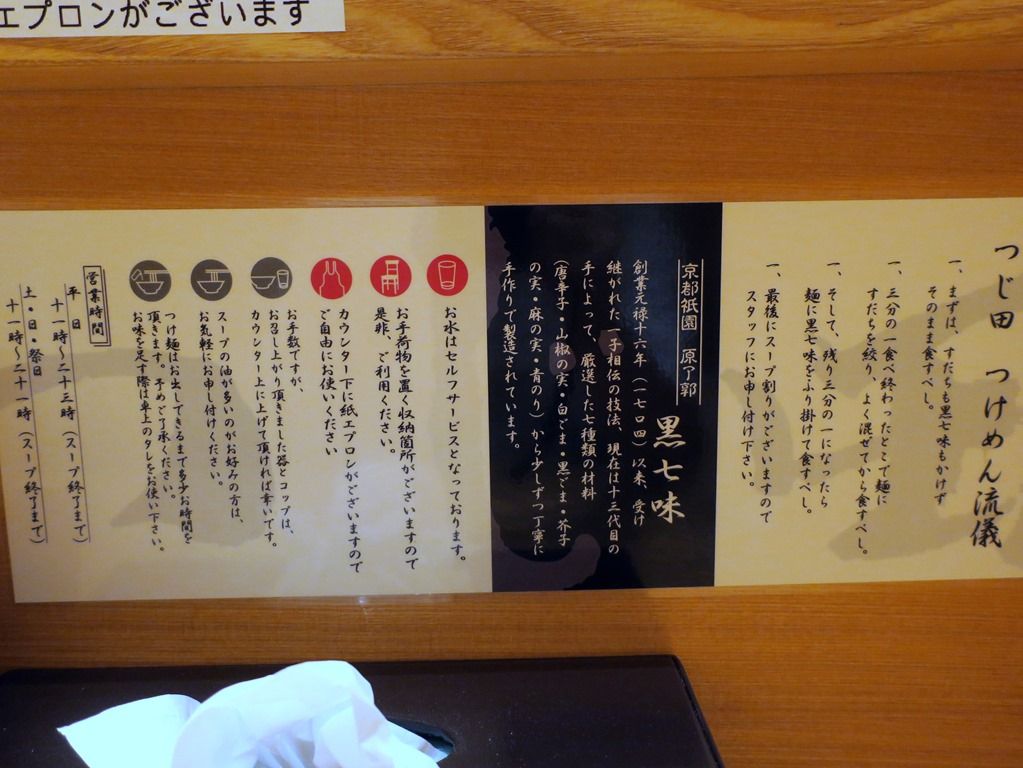 エプロンがございます
つじ田 つけめん流儀
一、まずは、すだちも黒七味もかけず
そのまま食すべし。
一、三分の一食べ終わったとこで麺に
すだちを絞り、よく混ぜてから食すべし。
一、そして、残り三分の一になったら
麺に黒七味をふり掛けて食すべし。
一、最後にスープ割りがございますので
スタッフにお申し付け下さい。
京都祇園 原了郭
黒七味
創業元禄十六年(一七〇四)以来、受け
継がれた一子相伝の技法、現在は十三代目の
手によって、厳選した七種類の材料
(唐辛子・山椒の実・白ごま・黒ごま・芥子
の実・麻の実・青のり)から少しずつ丁寧に
手作りで製造されています。
お水はセルフサービスとなっております。
お手荷物を置く収納箇所がございますので
是非、ご利用ください。
カウンター下に紙エプロンがございますので
ご自由にお使いください
お手数ですが、
お召し上がり頂きました器とコップは、
カウンター上に上げて頂ければ幸いです。
スープの油が多いのがお好みの方は、
お気軽にお申し付けください。
つけ麺はお出しできるまで多少お時間を
頂きます。予めご了承ください。
お味を足す際は卓上のタレをお使い下さい。
営業時間
平 日
十一時〜二十三時(スープ終了まで)
土・日・祭日
十一時〜二十一時(スープ終了まで)